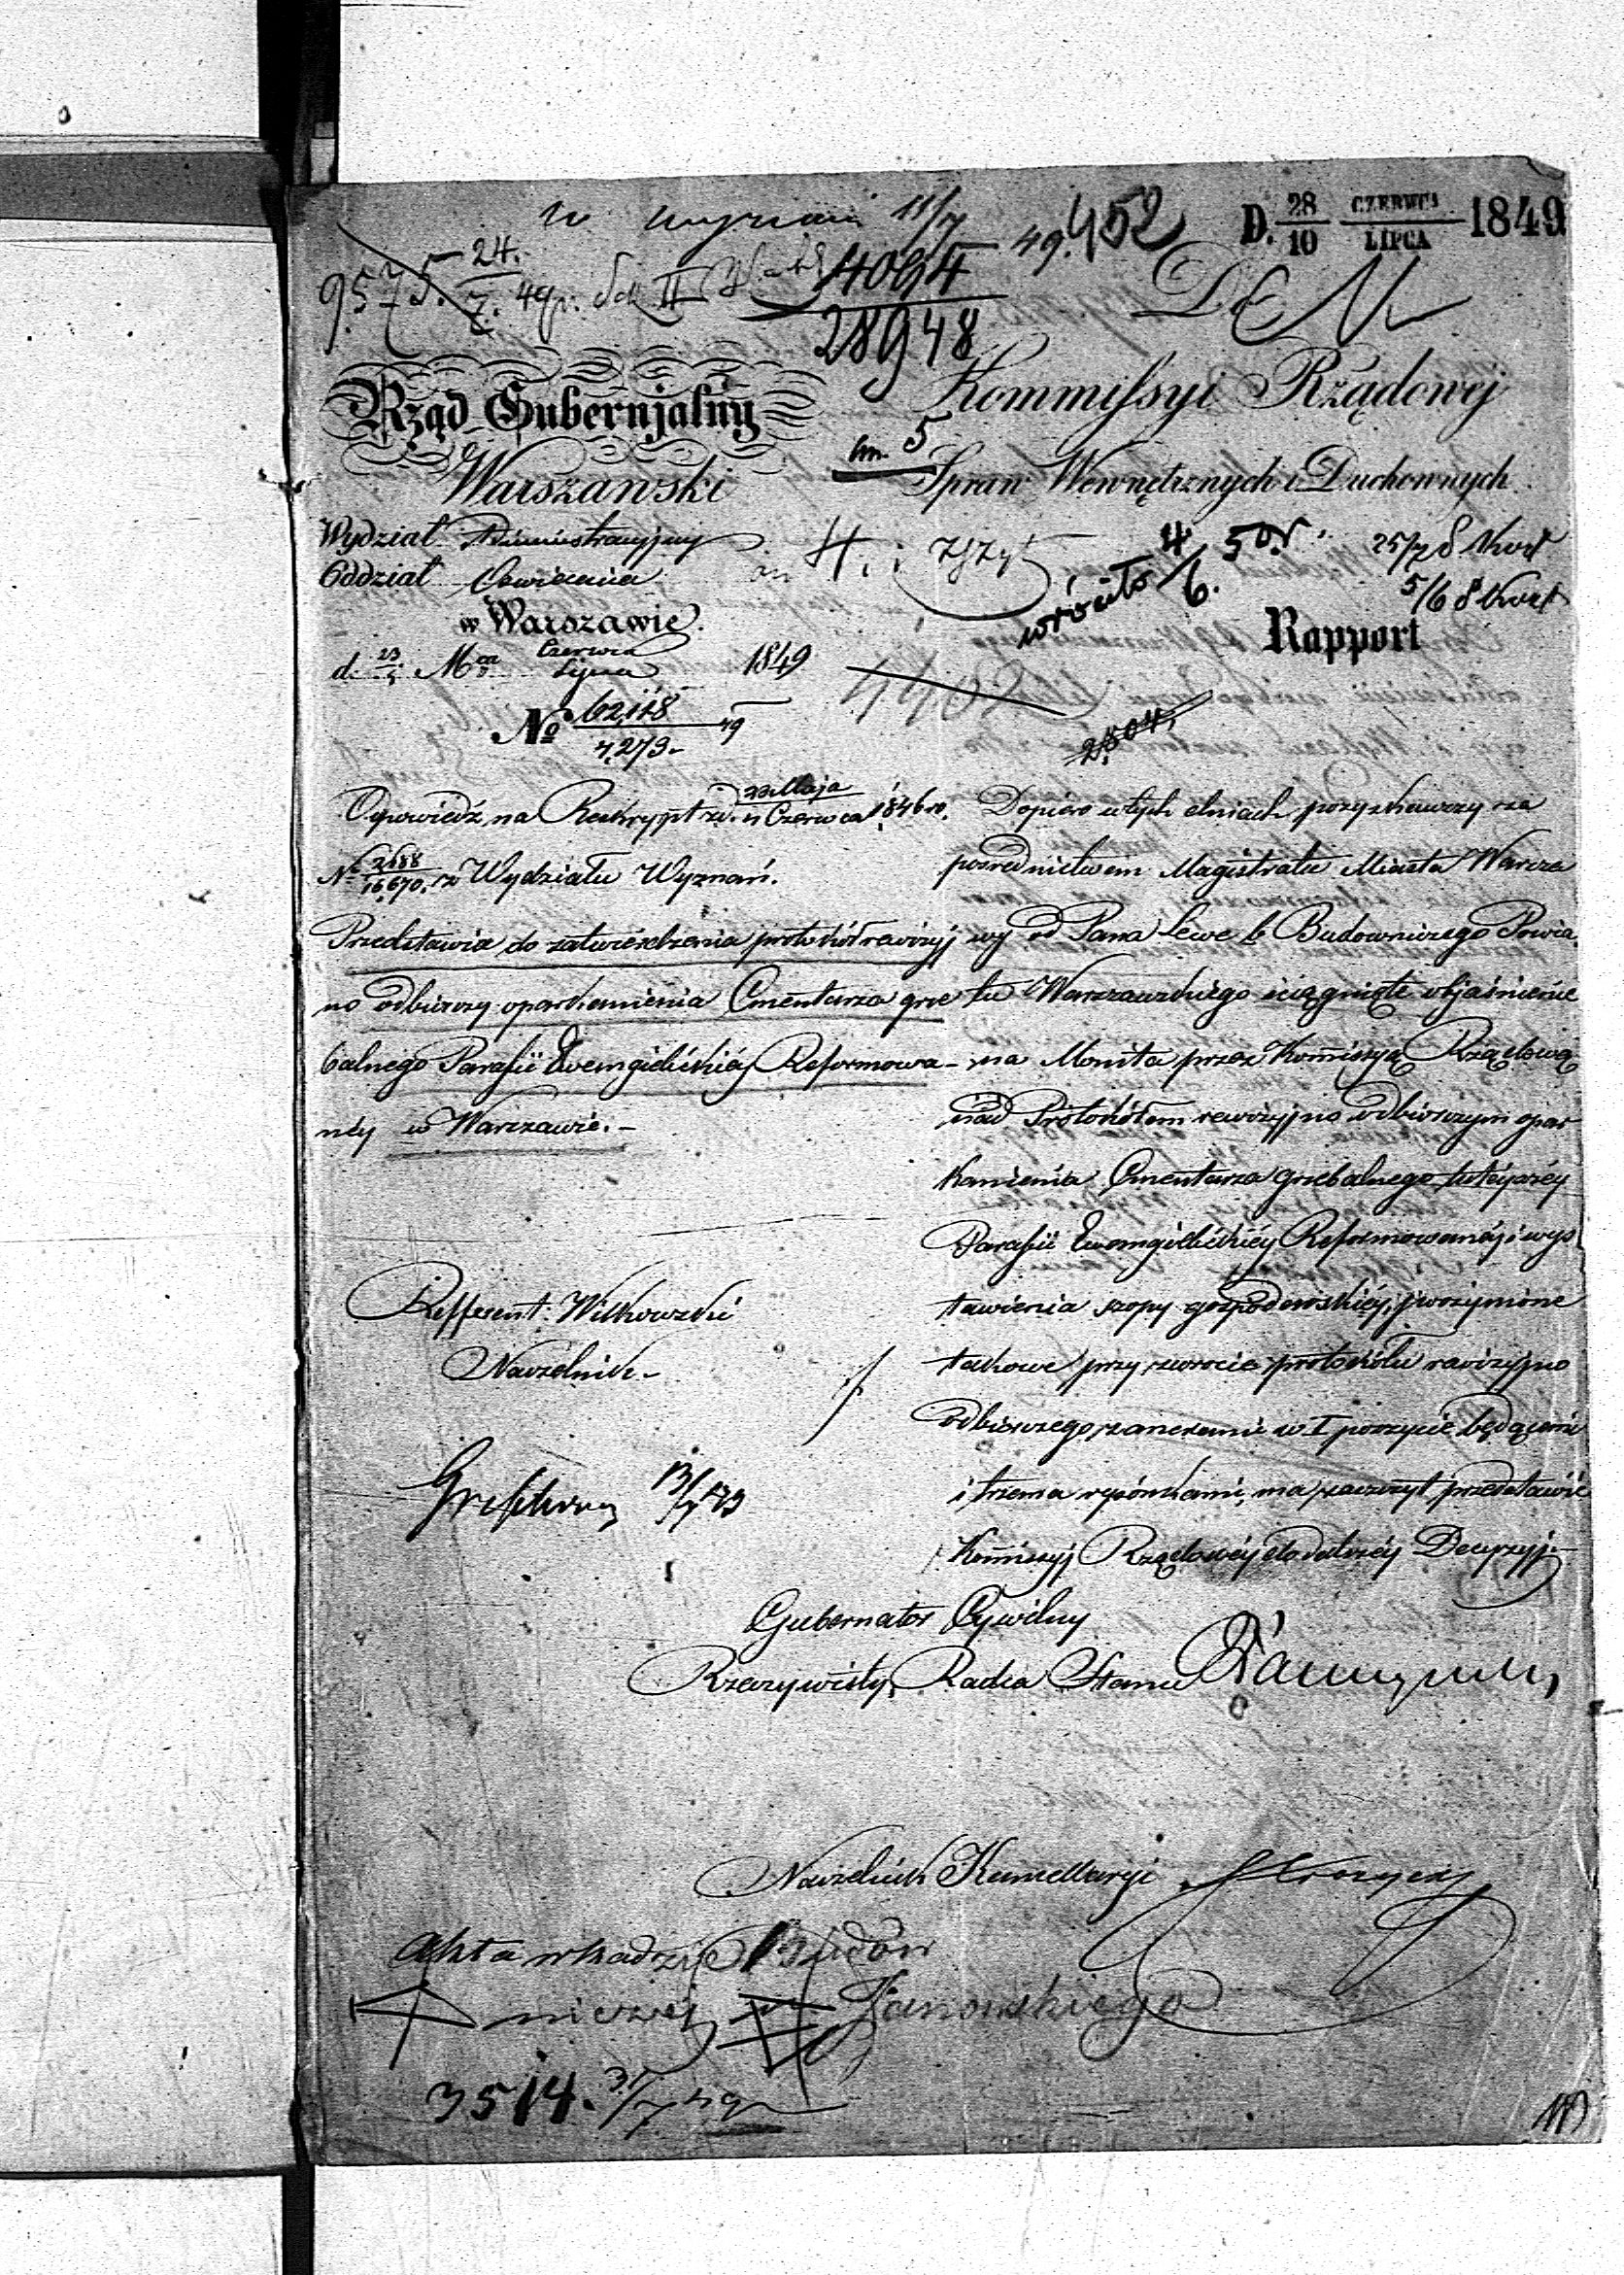 w wyznań 11/7 49. 452
D. 28/10 CZERWCA/LIPCA 1849
9575. 24./7. 49 r.
4094/28948
Rząd Gubernjalny
Warszawski
Wydział Administracyjny
Oddział
w Warszawie.
d. 23/5 Mca Czerwca/Lipca 1849
No 62,118/7,273 49
Kommissyi Rządowej
Spraw Wewnętrznych i Duchownych
wróciło 4/6. 50 r.
Rapport
4402
2804.
Odpowiedź na Reskrypt z d. 23 Maja/4 Czerwca 1846 ro.
No 2188/16,670. z Wydziału Wyznań.
Przedstawia do zatwierdzenia protokół rewizyj
no odbiorczy oparkanienia Cmentarza grze
balnego Parafii Ewangielickiéj Reformowa-
néj w Warszawie.-
Refferent Witkowski
Naczelnik.-
Dopiero w tych dniach pozyskawszy za
pośrednictwem Magistratu Miasta Warsza
wy od Pana Lewe b. Budowniczego Powia
tu Warszawskiego ściągnięte objaśnienie
na Monita przez Kommissyą Rządową
nad Protokółem rewizyjno odbiorczym opar
kanienia Cmentarza grzebalnego tutéjszéj
Parafii Ewangielickiéj Reformowanéj i wys
tawienia szopy gospodarskiéj, uczynione
takowe przy zwrocie protokółu rewizyjno
odbiorczego, z anexami w I poszycie będącemi
i trzema rysunkami, ma zaszczyt przedstawić
Kommissyj Rządowéj do dalszéj Decyzyj.-
Gubernator Cywilny
Rzeczywisty Radca Stanu
Naczelnik Kancellaryi
Akta w Radzie Budow
niczej Janowskiego
3514. 31/7 49